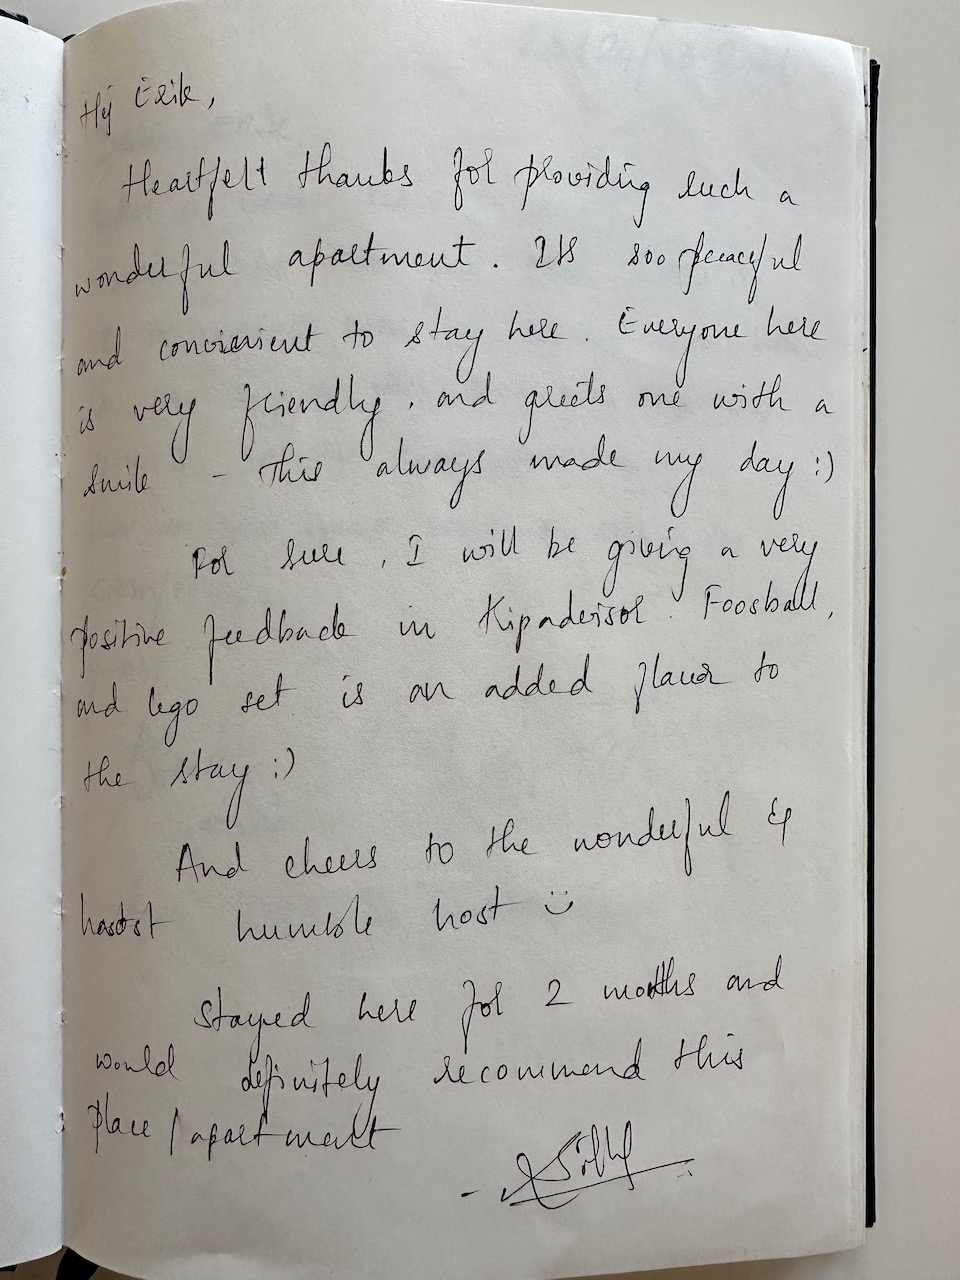 Hij Erik,
Heartfelt thanks for providing such a
wonderful apartment. Its soo peaceful
and convienient to stay here. Everyone here
is very friendly, and greets one with a
smile - This always made my day :)
For sure, I will be giving a very
positive feedback in Kipadvisor. Foosball,
and lego set is an added flavor to
the stay :)
And cheers to the wonderful &
humble host
Stayed here for 2 months and
would definitely recommend this
place / apartment